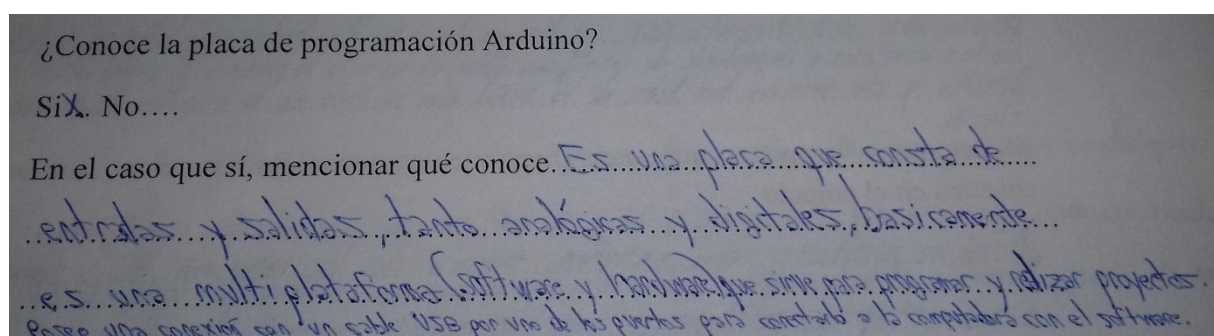 ¿Conoce la placa de programación Arduino?
SiX. No....
En el caso que sí, mencionar qué conoce. Es una placa que consta de
entradas y salidas, tanto analógicas y digitales, basicamente
es una multiplataforma (software y hardware) que sirve para programar y realizar proyectos.
Posee una conexión con un cable USB por uno de los puertos para conectarlo a la computadora con el software.